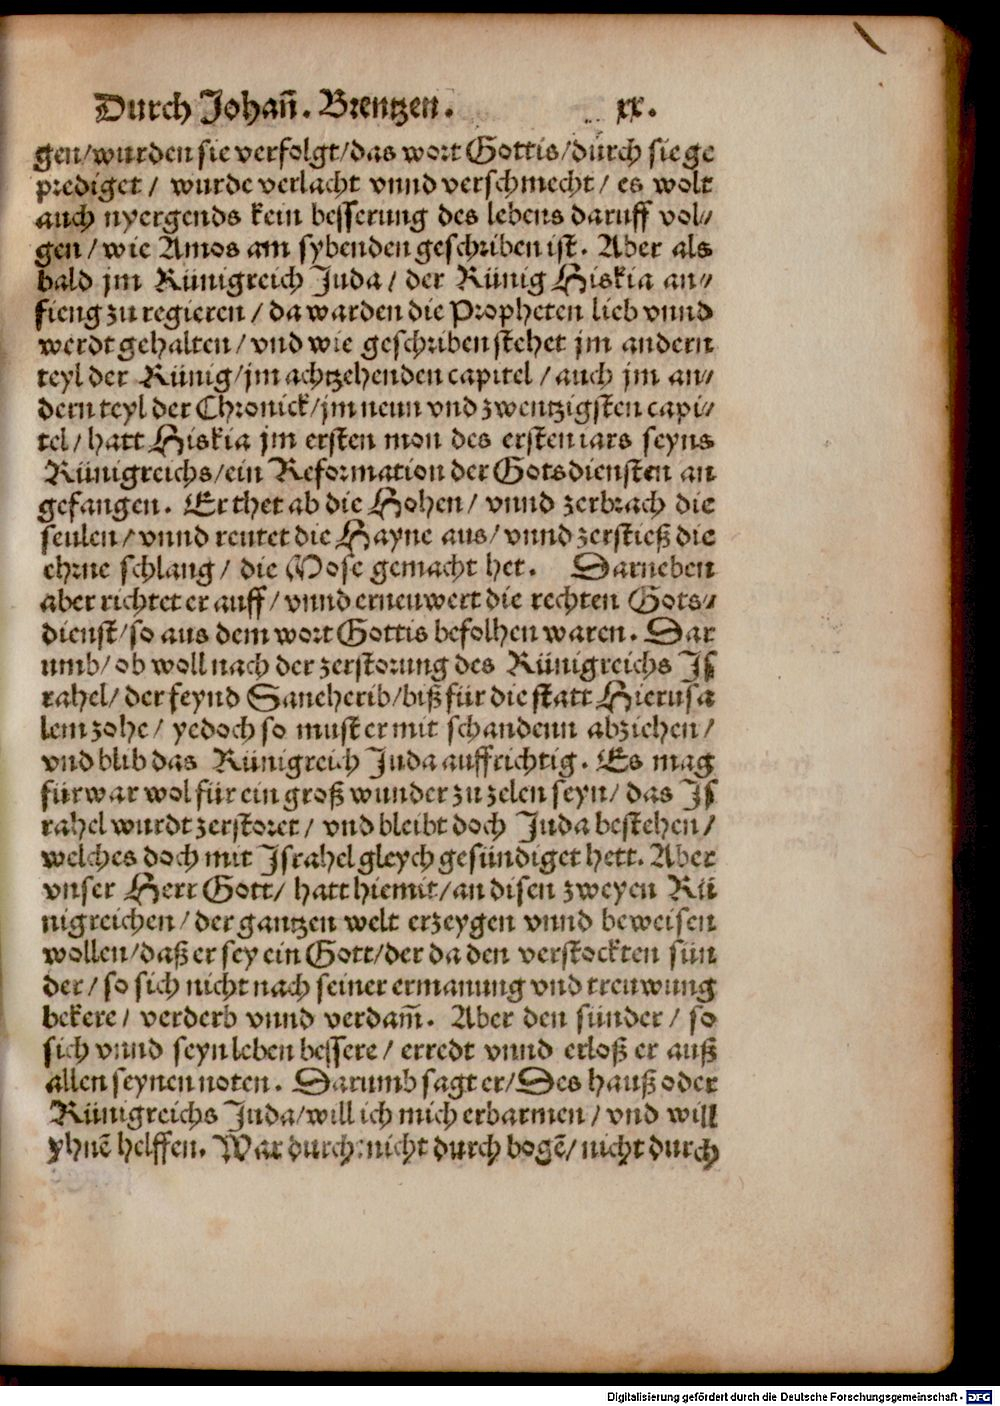 Durch Johañ. Brentzen. xx.
gen/wurden sie verfolgt/das wort Gottis/durch sie ge
prediget / wurde verlacht vnnd verschmecht / es wolt
auch nyergends kein besserung des lebens daruff vol⸗
gen / wie Amos am sybenden geschriben ist. Aber als
bald jm Künigreich Juda / der Künig Hiskia an⸗
fieng zu regieren / da warden die Propheten lieb vnnd
werdt gehalten / vnd wie geschriben stehet jm andern
teyl der Künig/jm achtzehenden capitel / auch jm an⸗
dern teyl der Chronick/jm neun vnd zwentzigsten capi⸗
tel / hatt Hiskia jm ersten mon des ersten iars seyns
Künigreichs/ein Reformation der Gotsdiensten an
gefangen. Er thet ab die Hohen / vnnd zerbrach die
seulen / vnnd reutet die Hayne aus/ vnnd zerstieß die
ehrne schlang / die Mose gemacht het. Darneben
aber richtet er auff / vnnd erneuwert die rechten Gots⸗
dienst/so aus dem wort Gottis befolhen waren. Dar
umb/ob woll nach der zerstorung des Künigreichs Jſ
rahel/ der feynd Saneherib/biß für die statt Hierusa
lem zohe / yedoch so must er mit schandenn abziehen /
vnd blib das Künigreich Juda auffrichtig. Es mag
fürwar wol für ein groß wunder zu zelen seyn/ das Jſ
rahel wurdt zerstoret / vnd bleibt doch Juda bestehen /
welches doch mit Jsrahel gleych gesündiget hett. Aber
vnser Herr Gott/ hatt hiemit/an disen zweyen Kü
nigreichen / der gantzen welt erzeygen vnnd beweisen
wollen/daß er sey ein Gott/der da den verstockten sün
der / so sich nicht nach seiner ermanung vnd treuwung
bekere / verderb vnnd verdam̃. Aber den sünder / so
sich vnnd seyn leben bessere / erredt vnnd erloß er auß
allen seynen noten. Darumb sagt er/Des hauß oder
Künigreichs Juda/will ich mich erbarmen / vnd will
yhnẽ helffen. War durch: nicht durch bogẽ/ nicht durch
Digitalisierung gefördert durch die Deutsche Forschungsgemeinschaft - DFG